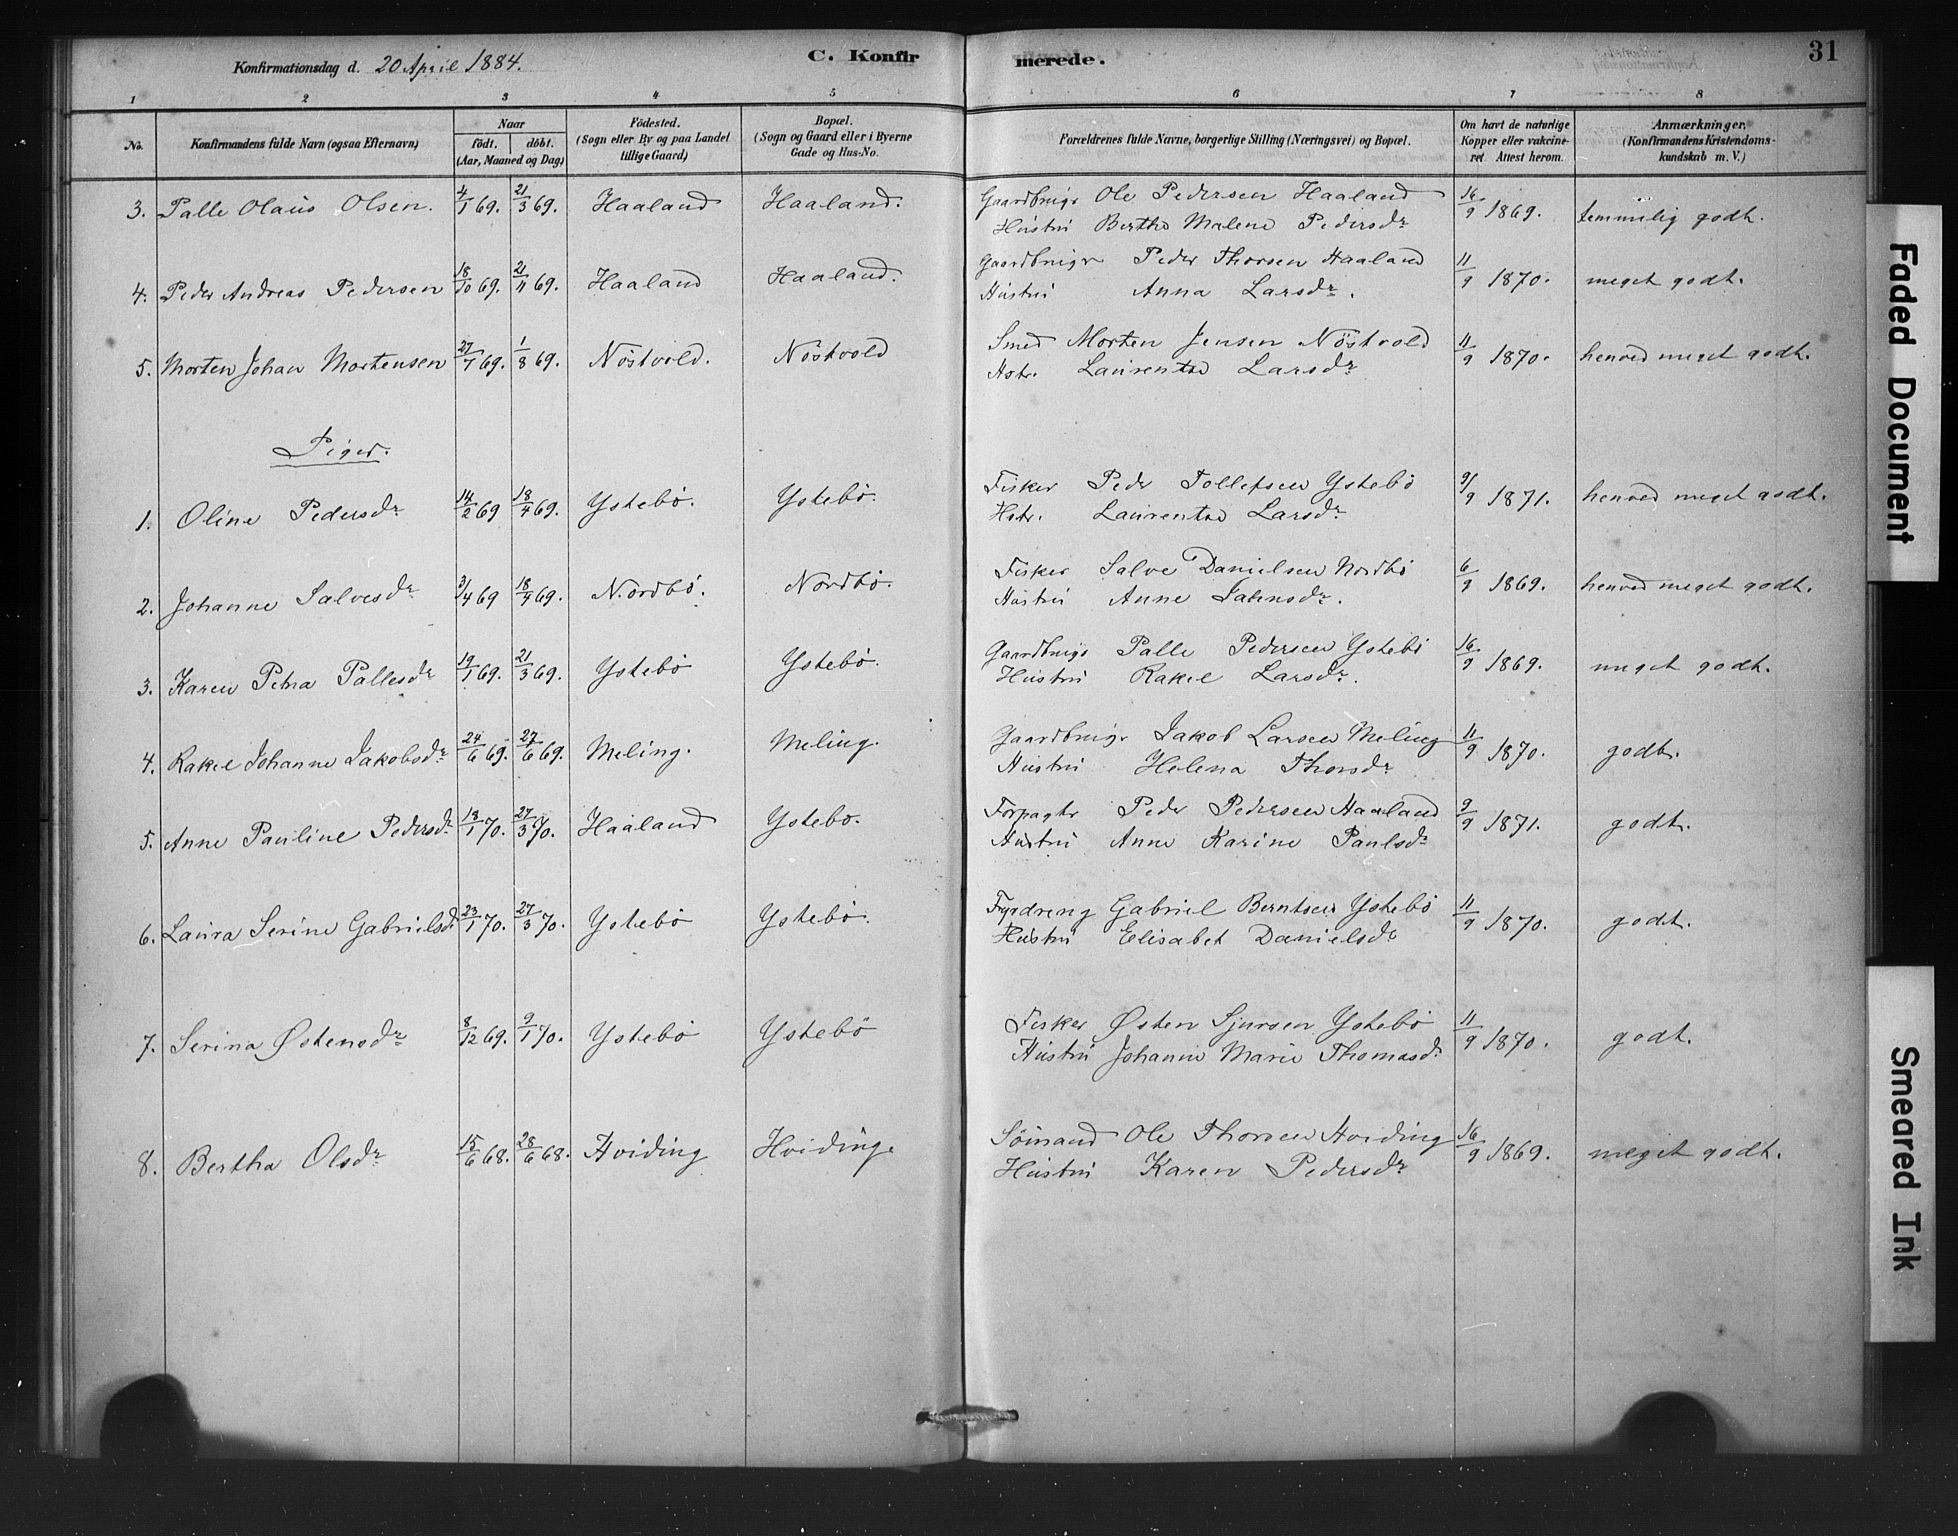 Konfirmationsdag d. 20 April 1884.
C. Konfirmerede.
31
1 2 3 4 5 6 7 8
No.
Konfirmandens fulde Navn (ogsaa Efternavn)
Naar
födt. döbt.
(Aar, Maaned og Dag)
Födested.
(Sogn eller By og paa Landet
tillige Gaard)
Bopæl.
(Sogn og Gaard eller i Byerne
Gade og Hus-No.
Forældrenes fulde Navne, borgerlige Stilling (Næringsvei) og Bopæl.
Om havt de naturlige
Kopper eller vakcine-
ret. Attest herom.
Anmærkninger.
(Konfirmandens Kristendoms-
kundskab m. V.)
3. Palle Olaus Olsen. 4/1 69. 21/3 69. Haaland Haaland. Gaardbrugr Ole Pedersen Haaland 16/9 1869. temmelig godt.
Hustru Berthe Malene Pedersdr
4. Peder Andreas Pedersen 18/10 69. 21/11 69. Haaland Haaland. Gaardbrugr Peder Thorsen Haaland 11/9 1870. meget godt.
Hustru Anna Larsdr.
5. Morten Johan Mortensen 27/7 69. 1/8 69. Nöstvold. Nöstvold Smed Morten Jensen Nöstvold 11/9 1870. henved meget godt.
Hstr. Laurentse Larsdr
Piger.
1. Oline Pedersdr 14/2 69 18/4 69. Ystebö. Ystebö. Fisker Peder Tollefsen Ystebö 9/9 1871. henved meget godt.
Hstr. Laurentse Larsdr
2. Johanne Salvesdr 3/4 69 18/4 69. Nordbö. Nordbö. Fisker Salve Danielsen Nordbö 6/9 1869. henved meget godt.
Hustru Anne
3. Karen Petra Pallesdr 19/1 69. 21/3 69. Ystebö Ystebö. Gaardbrugr Palle Pedersen Ystebö 16/9 1869. meget godt.
Hustru Rakel Larsdr.
4. Rakel Johanne Jakobsdr 24/6 69. 27/6 69. Meling. Meling. Gaardbrugr Jakob Larsen Meling 11/9 1870. godt.
Hustru Helena Thorsdr
5. Anne Pauline Pedersdr 18/1 70. 27/3 70. Haaland Ystebo. Forpagtr Peder Pedersen Haaland 9/9 1871. godt.
Hustru Anne Karine Paulsdr
6. Laura Serine Gabrielsdr 23/1 70. 27/3 70. Ystebö Ystebö. Fyrdreng Gabriel Berntsen Ystebö 11/9 1870. godt.
Hustru Elisabet Danielsdr
7. Serina Østensdr 8/12 69. 9/1 70. Ystebö Ystebö Fisker Østen Sjursen Ystebö 11/9 1870. godt.
Hustru Johanne Marie Thomasdr
8. Bertha Olsdr 15/6 68. 28/6 68. Hviding Hviding. Sömand Ole Thorsen Hviding 16/9 1869. meget godt.
Hustru Karen Pedersdr
Faded Document
Smeared Ink